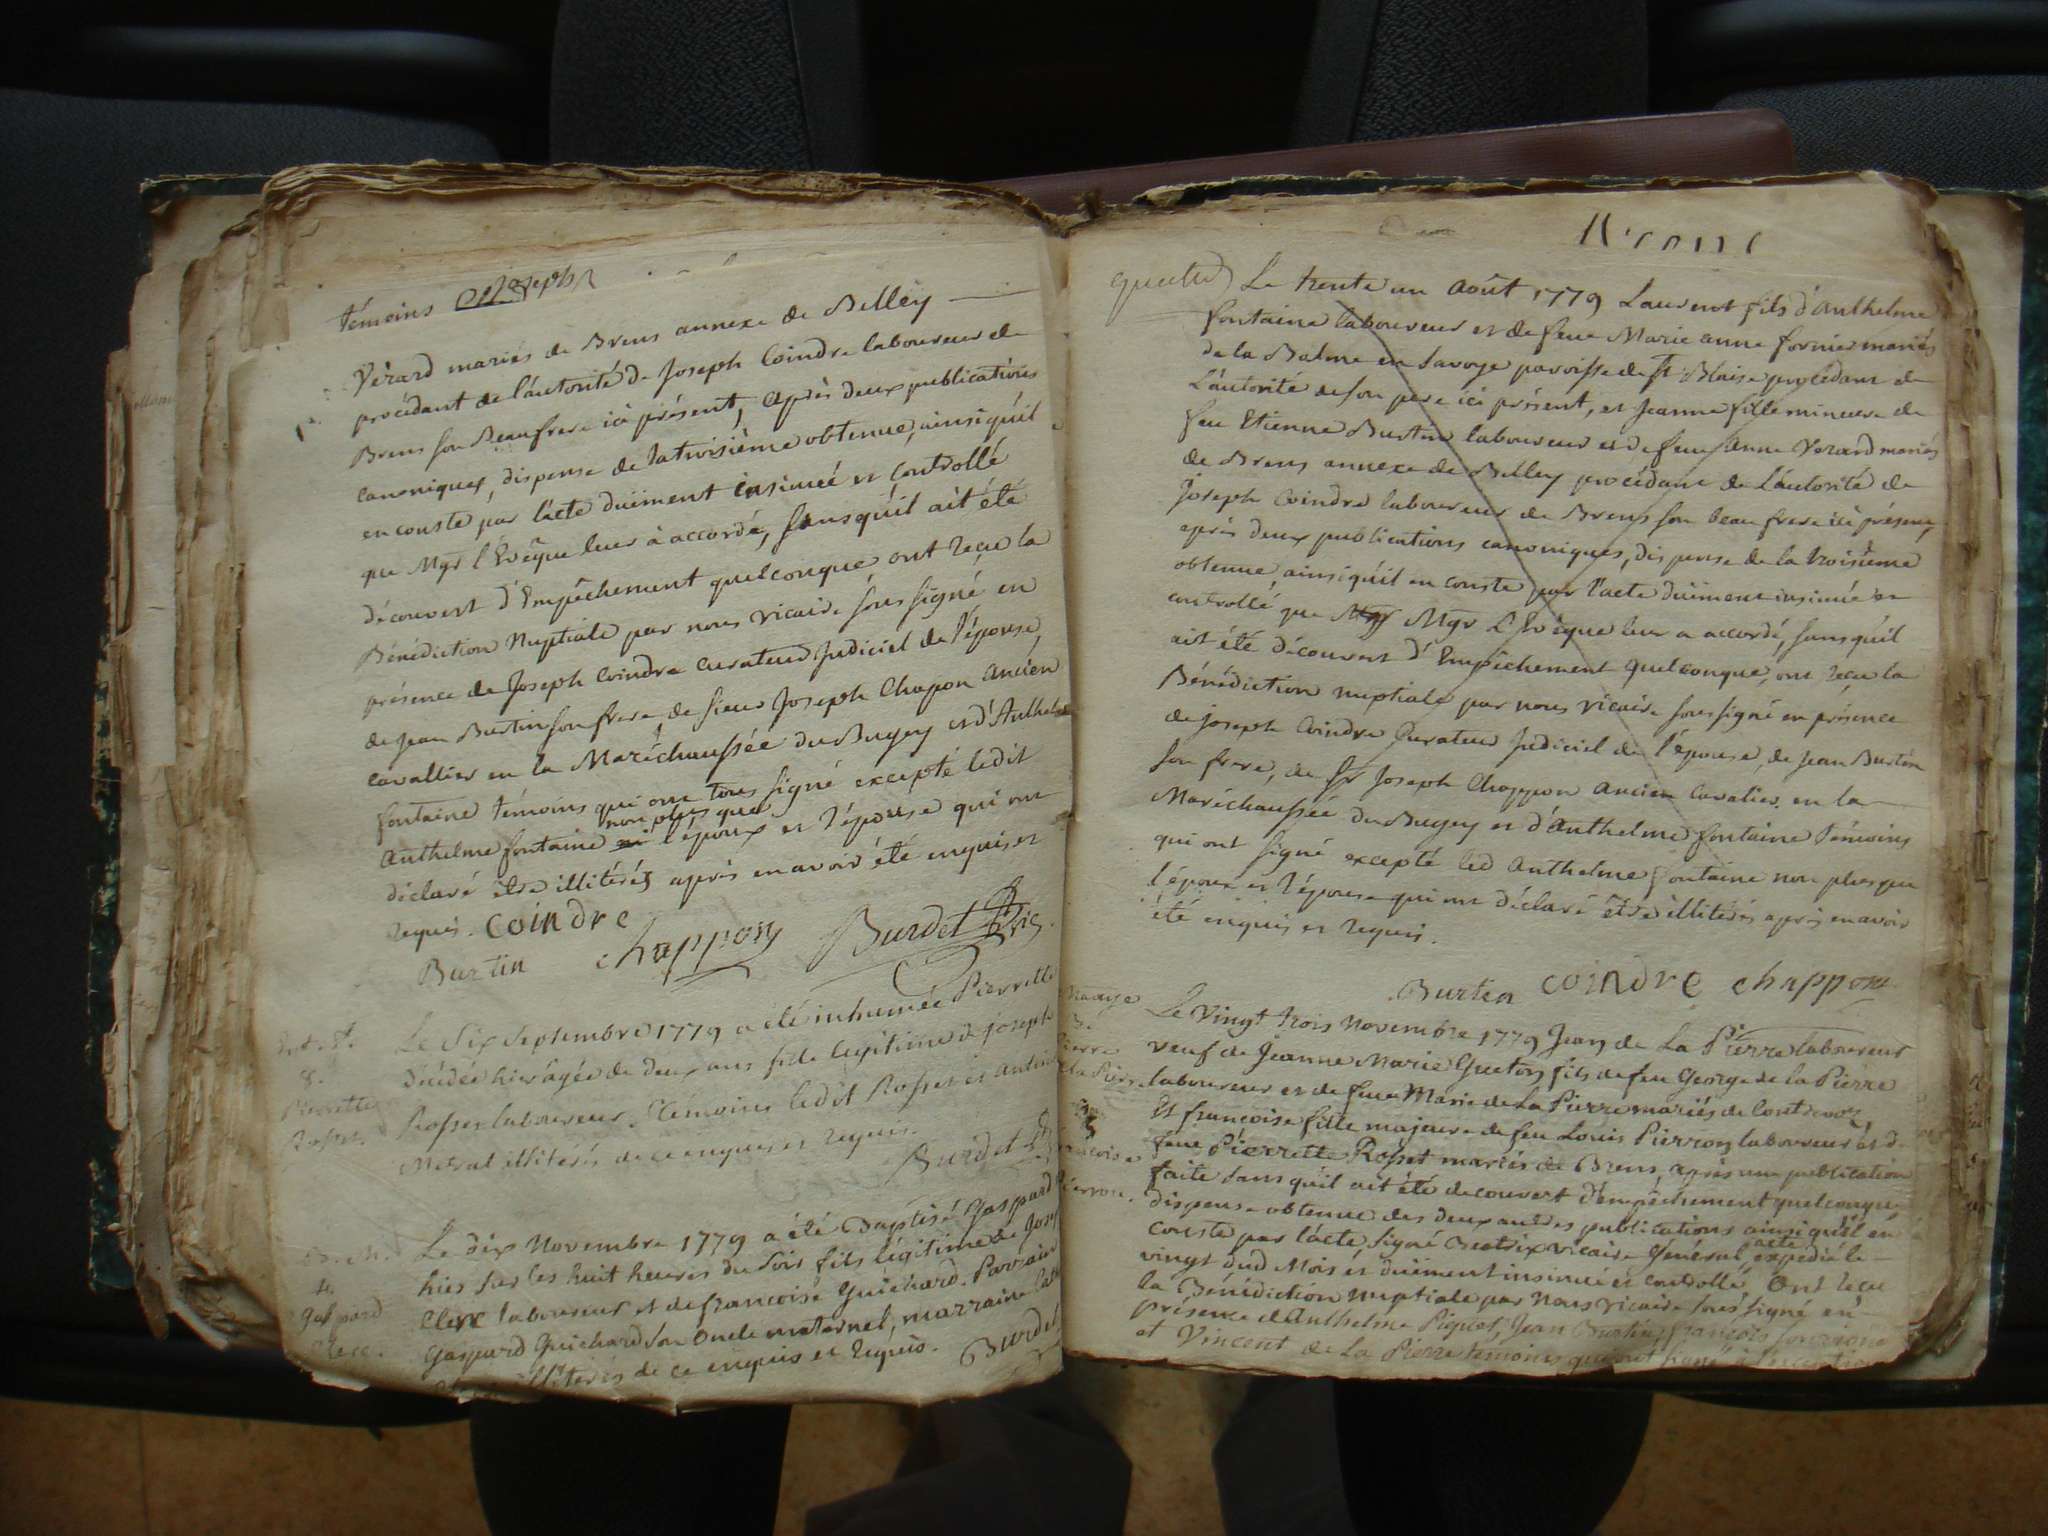 témoins Joseph
Vérard mariés de Brens annexe de Belley
procédant de l'autorité de Joseph Coindre laboureur de
Brens son Beaufrere ici présent, après deux publications
canoniques, dispense de la troisième obtenue, ainsi qu'il
en conste par l'acte duëment insinué et controllé
que Mgr l'Evêque leur à accordé, sans qu'il ait été
découvert d'Empêchement quelconque ont reçu la
Bénédiction Nuptiale par nous vicaire sous signé en
présence de Joseph Coindre curateur Judiciel de l'épouse,
de Jean Burtin son frere, de sieur Joseph Chapon ancien
cavallier en la Maréchaussée du Bugey et d'Anthelme
fontaine témoins qui ont tous signé excepté ledit
non plus que
Anthelme fontaine l'époux et l'épouse qui ont
déclaré être illitérés après en avoir été enquis et
requis. Coindre
Burtin chappon Burdet Vic.
Ent. S.
8.
Pierrette
Rosset.
Le Six Septembre 1779 a été inhumée Pierrette
décédée hier âgée de deux ans fille legitime de joseph
Rosset laboureur. Témoins ledit Rosset et Antoine
Metral illitérés de ce enquis et requis.
Burdet
4.
Gaspard
Clerc.
Le dix Novembre 1779 a été Baptisé Gaspard
hier sur les huit heures du soir fils légitime de Jos
Clerc laboureur et de francoise Guichard. Parrain
Gaspard Guichard son Oncle maternel, marraine
illitérés de ce enquis et requis. Burdet
Le trente un Août 1779 Laurent fils d'Anthelme
fontaine laboureur et de feue Marie anne fornier mariés
de la Balme en Savoye paroisse de St Blaise procédant de
l'autorité de son pere ici présent, et Jeanne fille mineure de
feu Etienne Burtin laboureur et de feue Anne Verard mariés
de Brens annexe de Belley procédant de l'autorité de
Joseph Coindre laboureur de Brens son beau frere ici présent,
après deux publications canoniques, dispense de la troisième
obtenue, ainsi qu'il en conste par l'acte duëment insinué et
controllé que Mgr Mgr L'Evêque leur a accordé, sans qu'il
ait été découvert d'Empêchement quelconque, ont reçu la
Bénédiction nuptiale par nous vicaire sous signé en présence
de joseph Coindre Curateur Judiciel de l'épouse, de Jean Burtin
son frere, de Sr Joseph Chappon ancien Cavalier en la
Maréchaussée du Bugey et d'Anthelme fontaine témoins
qui ont signé excepté led Anthelme fontaine non plus que
l'époux et l'épouse qui ont déclaré être illitérés après en avoir
été enquis et requis.
Burtin Coindre chappon
Mariage
3.
Pierre
de la Pierre
et
françoise
Pierron.
Le Vingt trois Novembre 1779 Jean de La Pierre laboureur
veuf de Jeanne Marie Gueton fils de feu George de la Pierre
laboureur et de feue Marie de La Pierre mariés de Contrevoz,
Et françoise fille majeure de feu Louis Pierron laboureur et de
feue Pierrette Rosset mariés de Brens, après une publication
faite sans qu'il ait été decouvert d'empêchement quelconque
dispense obtenue des deux autres publications ainsi qu'il en
conste par l'acte signé vicaire Général, acte expédié le
vingt dud Mois et duëment insinué et controllé, Ont reçu
la Bénédiction nuptiale par Nous vicaire sous signé en
présence d'Anthelme Piquet, Jean Burtin, françois
et Vincent de La Pierre temoins qui ont signé à l'exception